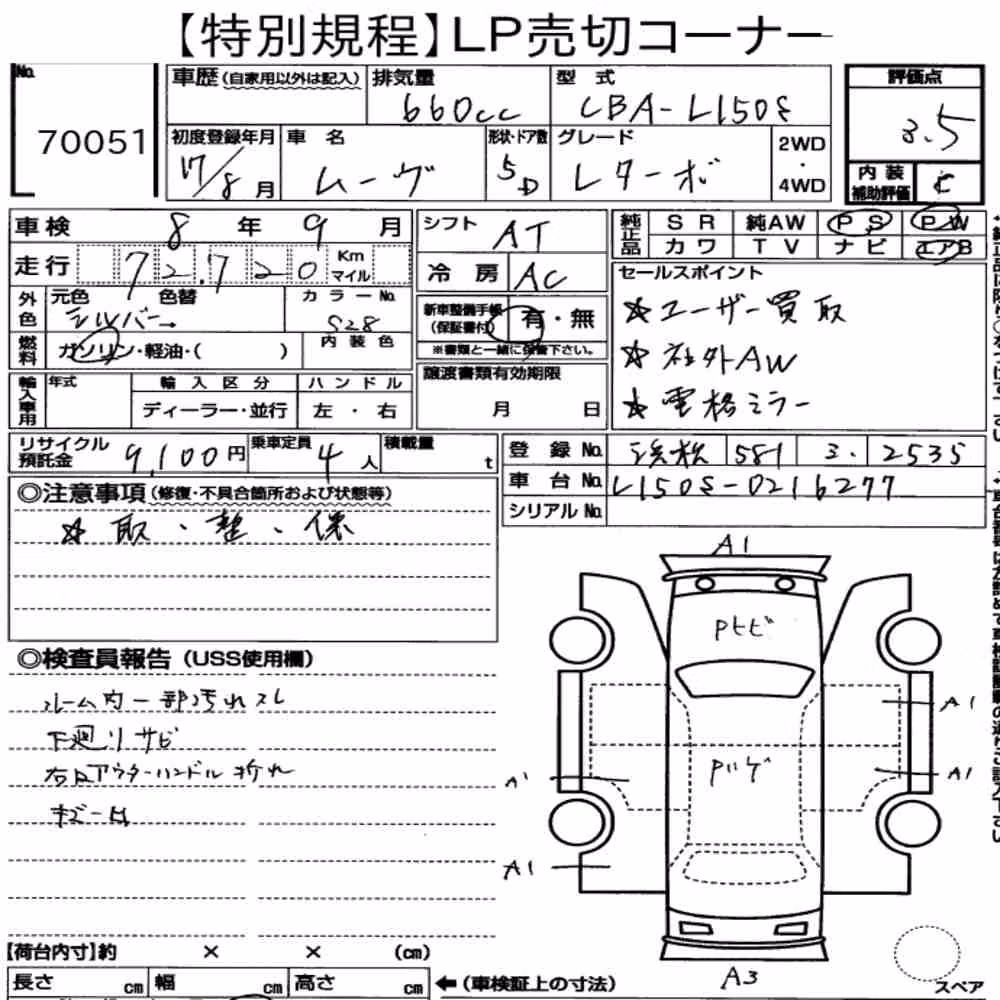 【特別規程】LP売切コーナー
No. 70051
車歴(自家用以外は記入) 排気量 660cc 型式 CBA-L150S 評価点 3.5
初度登録年月 17/8月 車名 ムーヴ 形状・ドア数 5D グレード Lターボ 2WD・4WD 内装補助評価 C
車検 8年 9月 シフト AT 純正品 SR 純AW PS PW
走行 72,720 Km マイル 冷房 AC カワ TV ナビ エアB
外色 元色 シルバー 色替 カラーNo. S28
燃料 ガソリン・軽油・( ) 内装色
新車整備手帳(保証書付) 有・無
※書類と一緒に保管下さい。
セールスポイント
☆ユーザー買取
☆社外AW
☆電格ミラー
輸入車用 年式 輸入区分 ハンドル
ディーラー・並行 左・右
譲渡書類有効期限
月 日
リサイクル預託金 9,100円 乗車定員 4人 積載量 t
登録No. 浜松 581 3. 2535
車台No. L150S-0216277
シリアルNo.
◎注意事項(修復・不具合箇所および状態等)
☆取・整・保
◎検査員報告(USS使用欄)
ルーム内一部汚れスレ
下廻りサビ
右Rアウターハンドル折れ
A1
Pトビ
A1
Pハゲ
A1
A1
A1
A3
【荷台内寸】約 × × (cm)
長さ cm 幅 cm 高さ cm ←(車検証上の寸法)
スペア